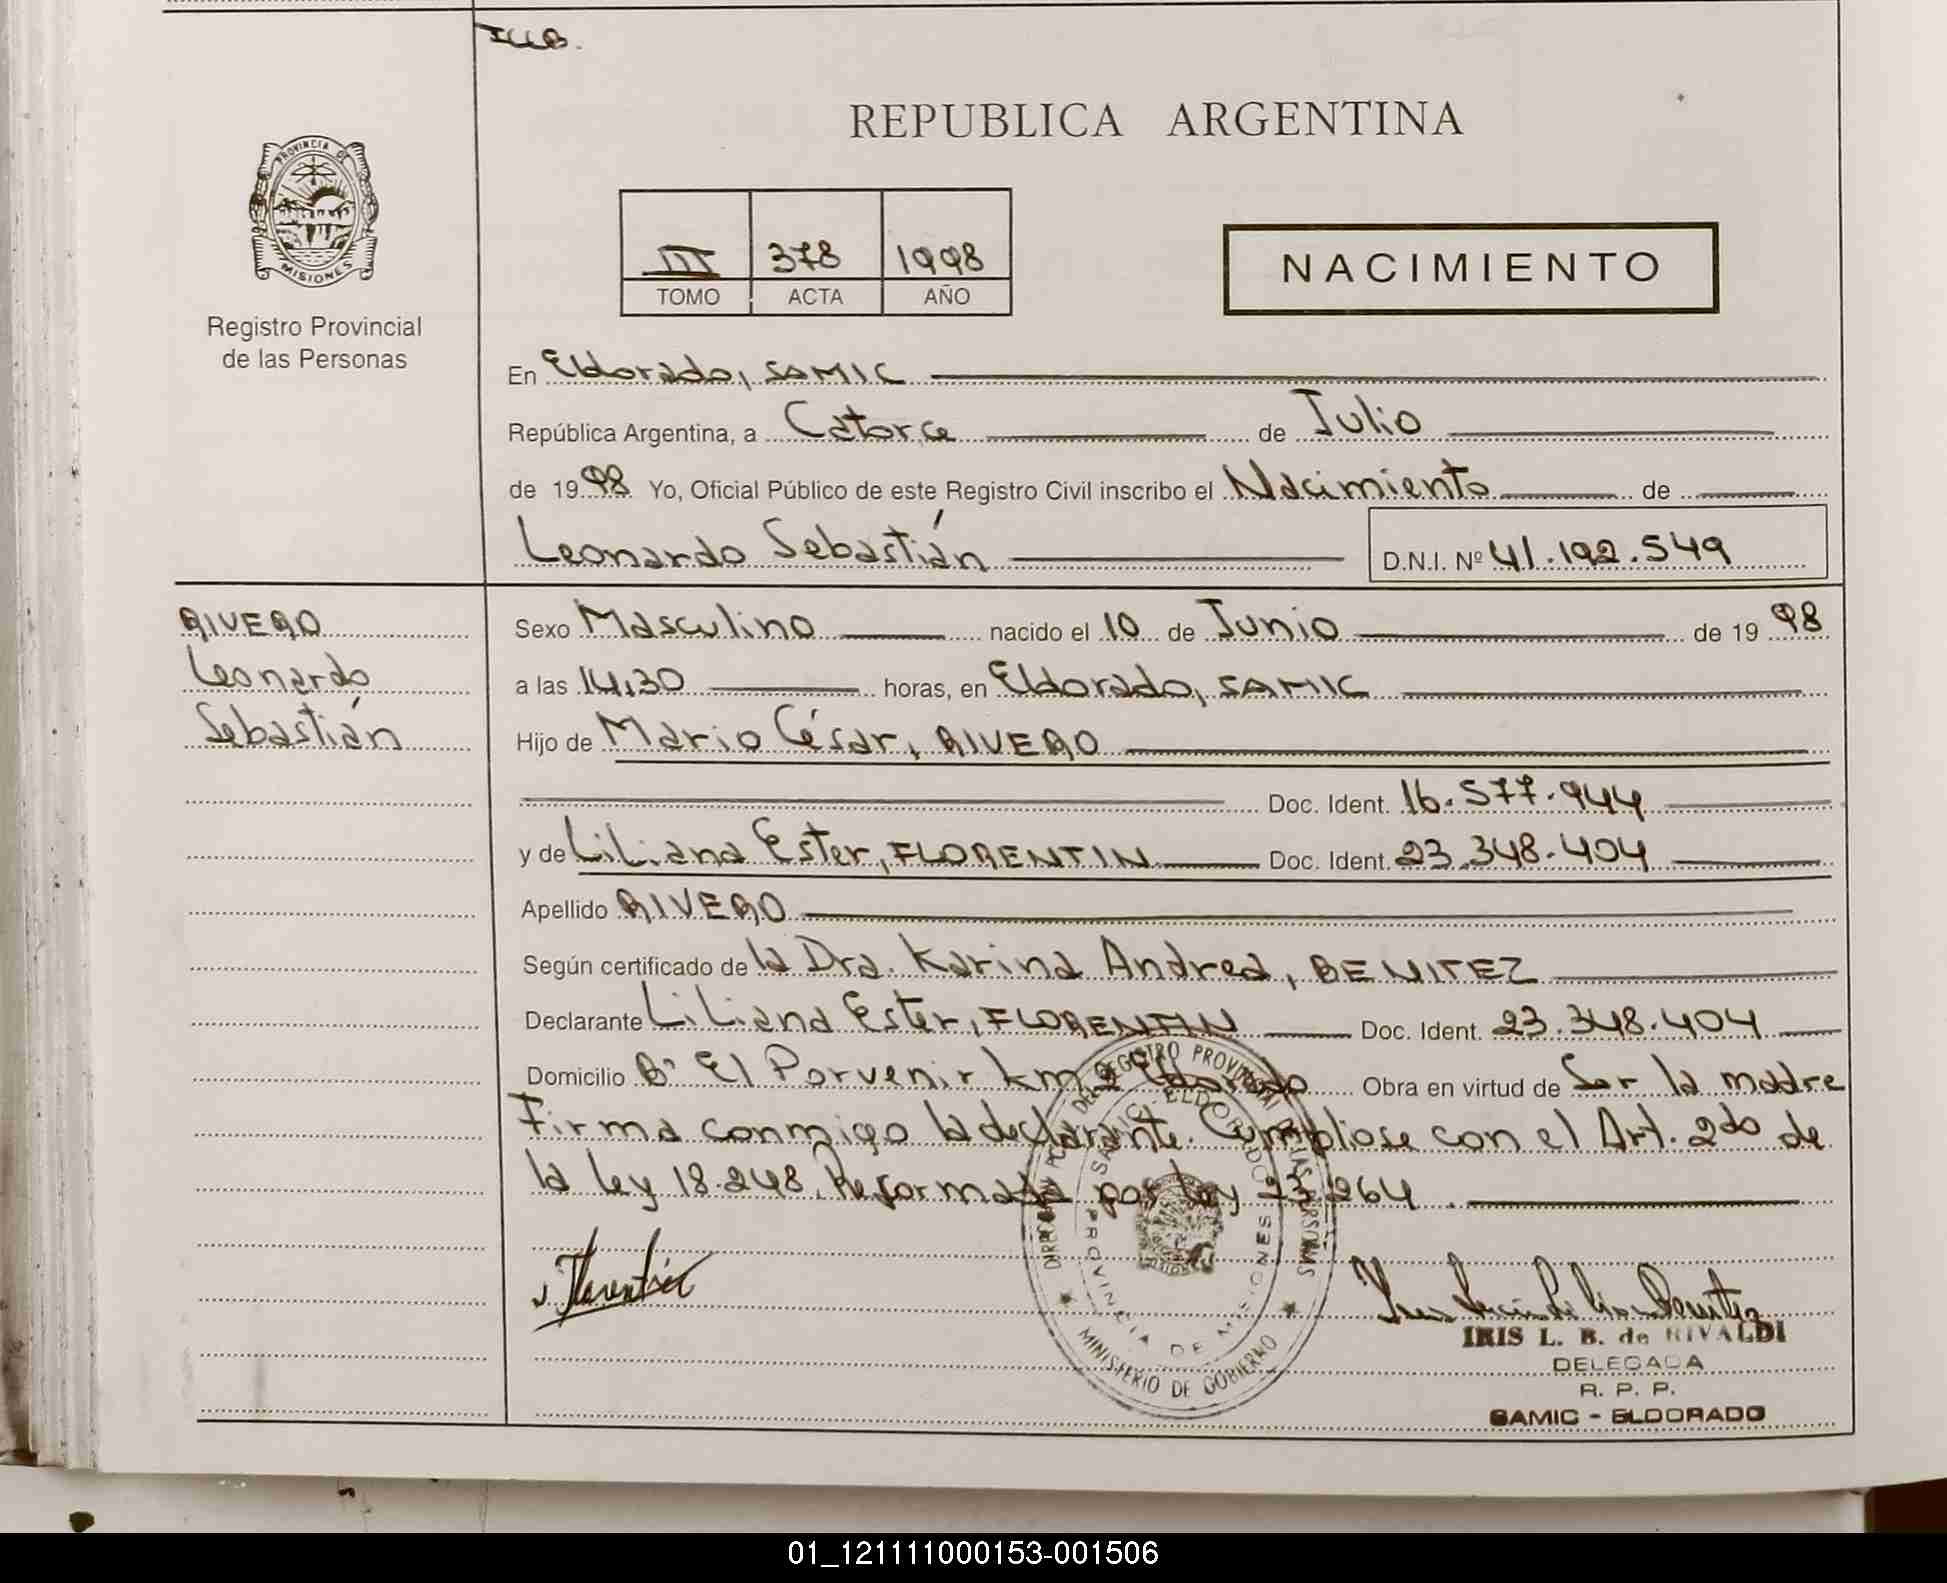 ILB.
REPUBLICA ARGENTINA
PROVINCIA DE
MISIONES
III 378 1998
TOMO ACTA AÑO
NACIMIENTO
Registro Provincial
de las Personas
En Eldorado, SAMIC
República Argentina, a Catorce de Julio
de 1998 Yo, Oficial Público de este Registro Civil inscribo el Nacimiento de
Leonardo Sebastián D.N.I. Nº 41.192.549
RIVERO
Leonardo
Sebastián
Sexo Masculino nacido el 10 de Junio de 1998
a las 14,30 horas, en Eldorado, SAMIC
Hijo de Mario César, RIVERO
Doc. Ident. 16.577.944
y de Liliana Ester, FLORENTIN Doc. Ident. 23.348.404
Apellido RIVERO
Según certificado de la Dra. Karina Andrea, BENITEZ
Declarante Liliana Ester, FLORENTIN Doc. Ident. 23.348.404
Domicilio Bº El Porvenir km 9 Eldorado Obra en virtud de Ser la madre
Firma conmigo la declarante. Cumpliose con el Art. 2do de
la ley 18.248. Reformada por ley 23.264
Florentin
DIRECCION DEL REGISTRO PROVINCIAL DE LAS PERSONAS
SAMIC - ELDORADO
PROVINCIA DE MISIONES
MINISTERIO DE GOBIERNO
IRIS L. B. de RIVALDI
DELEGADA
R. P. P.
SAMIC - ELDORADO
01_121111000153-001506